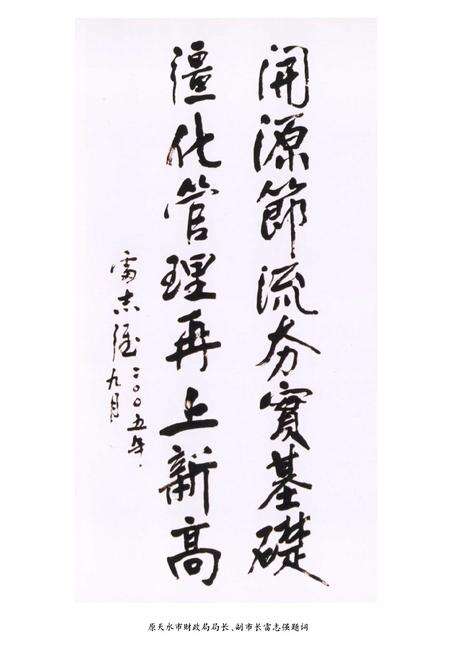 開源節流夯實基礎
彊化管理再上新高
雷志强二〇〇五年
九月
原天水市财政局局长、副市长雷志强题词